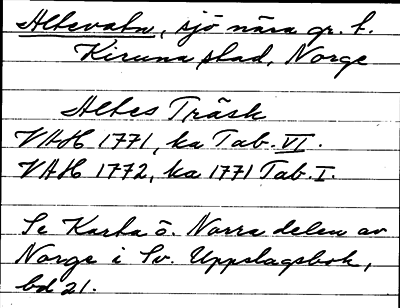 Altevatn, sjö nära gr. t.
Kiruna stad, Norge
Altes Träsk
VAH 1771, ka Tab. VI.
VAH 1772, ka 1771 Tab. I.
Se Karta ö. Norra delen av
Norge i Sv. Uppslagsbok,
bd 21.